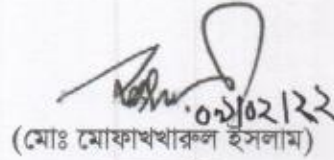 ০২/০২/২২
(মোঃ মোফাখখারুল ইসলাম)